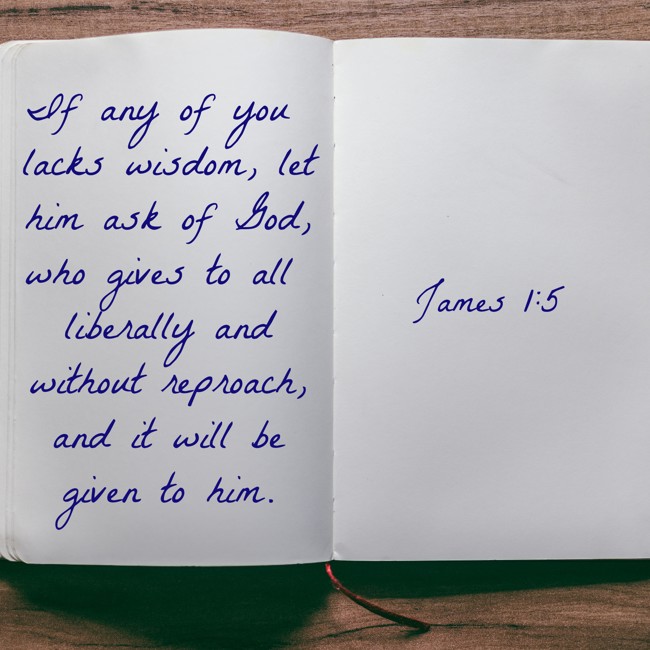 If any of you
lacks wisdom, let
him ask of God,
who gives to all
liberally and
without reproach,
and it will be
given to him.
James 1:5